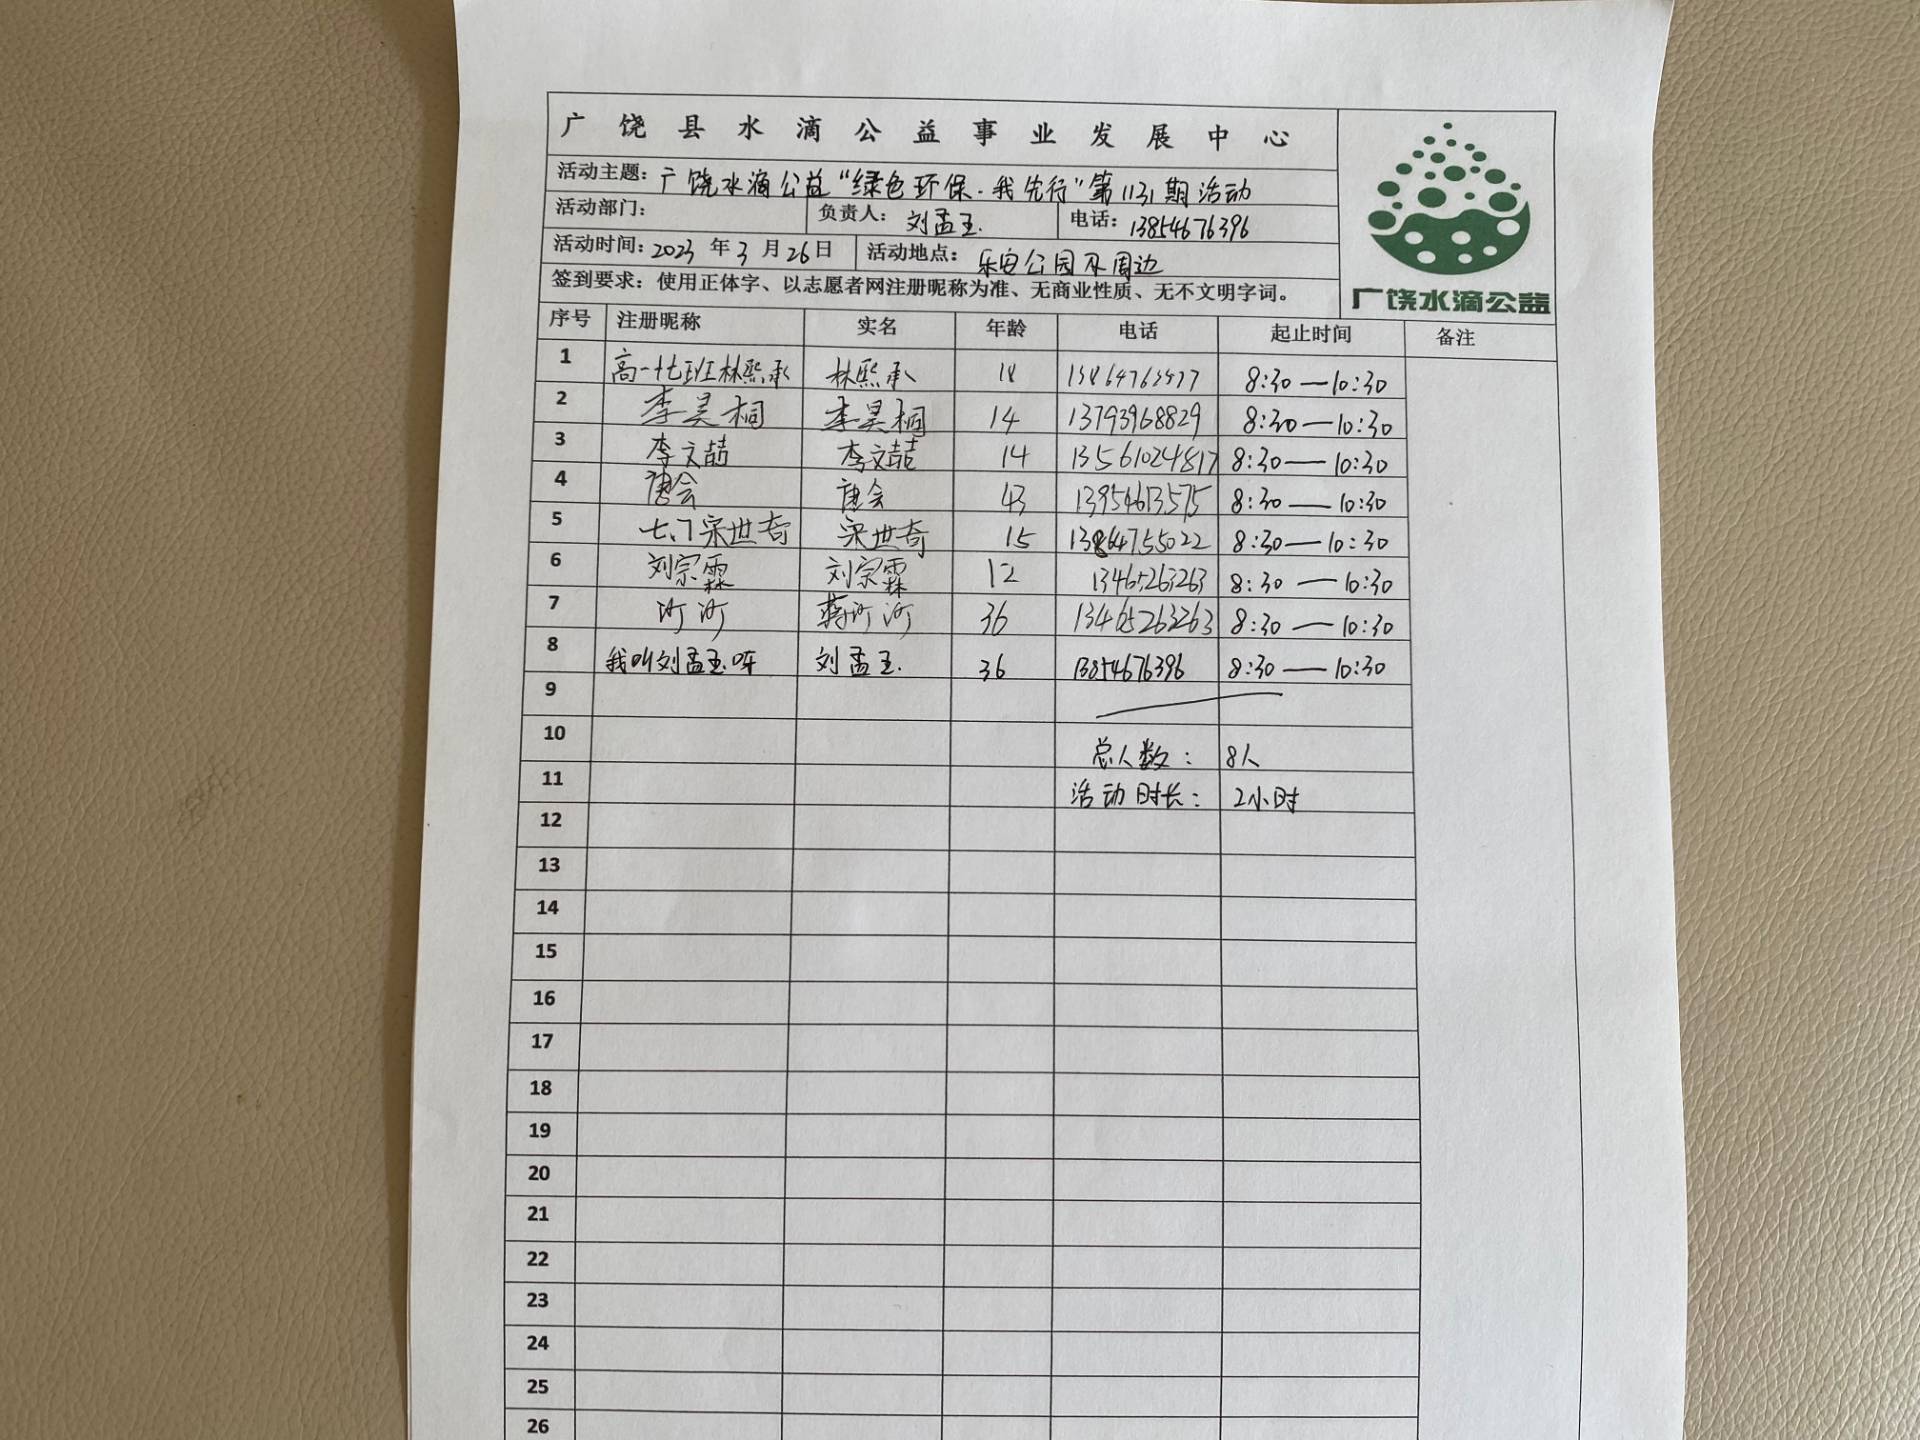 广饶县水滴公益事业发展中心
活动主题：广饶水滴公益“绿色环保·我先行”第1131期活动
活动部门： 负责人：刘孟玉. 电话：13854676396
活动时间：2023年3月26日 活动地点：乐安公园及周边
签到要求：使用正体字、以志愿者网注册昵称为准、无商业性质、无不文明字词。
广饶水滴公益
序号 注册昵称 实名 年龄 电话 起止时间 备注
1 高一十七班林熙承 林熙承 18 8:30—10:30
2 李昊桐 李昊桐 14 13793968829 8:30—10:30
3 李文喆 李文喆 14 13561024817 8:30—10:30
4 唐会 唐会 43 13954613575 8:30—10:30
5 七.7宋世奇 宋世奇 15 13864755022 8:30—10:30
6 刘宗霖 刘宗霖 12 13465263263 8:30—10:30
7 沂沂 蒋沂沂 36 13465263263 8:30—10:30
8 我叫刘孟玉呀 刘孟玉. 36 13854676396 8:30—10:30
9
10 总人数： 8人
11 活动时长： 2小时
12
13
14
15
16
17
18
19
20
21
22
23
24
25
26